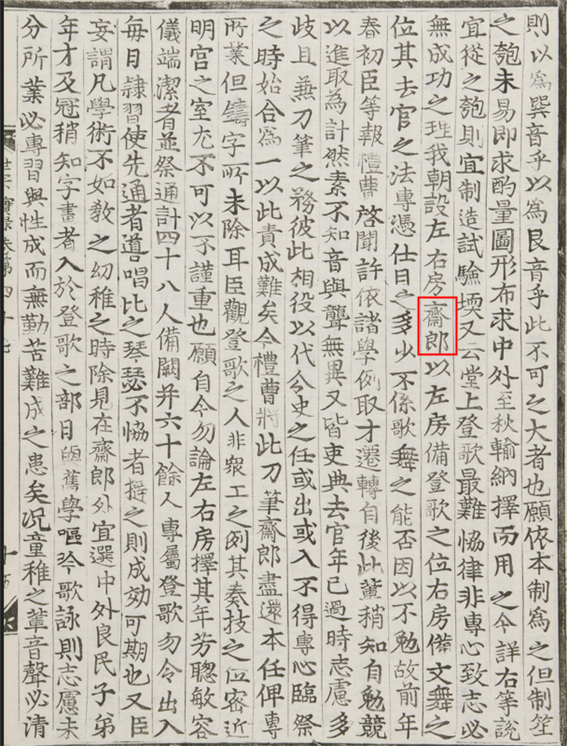 則以爲巽音乎以爲艮音乎此不可之大者也願依本制爲之但制笙
之匏未易即求酌量圖形布求中外至秋輸納擇而用之今詳右等說
宜從之匏則宜制造試驗又云堂上登歌最難恊律非專心致志必
無成功之理我朝設左右房齋郎以左房備登歌之位右房備文舞之
位其去官之法專憑仕日之多少不係歌舞之能否因以不勉故前年
春初臣等報禮曹啓聞許依諸學例取才遷轉自後此輩稍知自勉競
以進取為計然素不知音與聾無異又皆吏典去官年已過時志慮多
歧且兼刀筆之務彼此相役以代令史之任或出或入不得專心臨祭
之時始合爲一以此責成難矣令禮曹將此刀筆齋郎盡還本任俾專
所業但鑄字所未除耳臣觀登歌之人非衆工之例其奏技之位密近
明宮之室尤不可以不謹重也願自今勿論左右房擇其年芳聦敏容
儀端潔者並祭通計四十八人備闕并六十餘人專屬登歌勿令出入
每日隷習使先通者導唱比之琴瑟不恊者撻之則成効可期也又臣
妄謂凡學術不如敎之幼稚之時除見在齋郎外宜選中外良民子弟
年才及冠稍知字畫者入於登歌之部目舊學嘔吟歌詠則志慮未
分所業必專習與性成而無勤苦難成之患矣况童稚之輩音聲必清